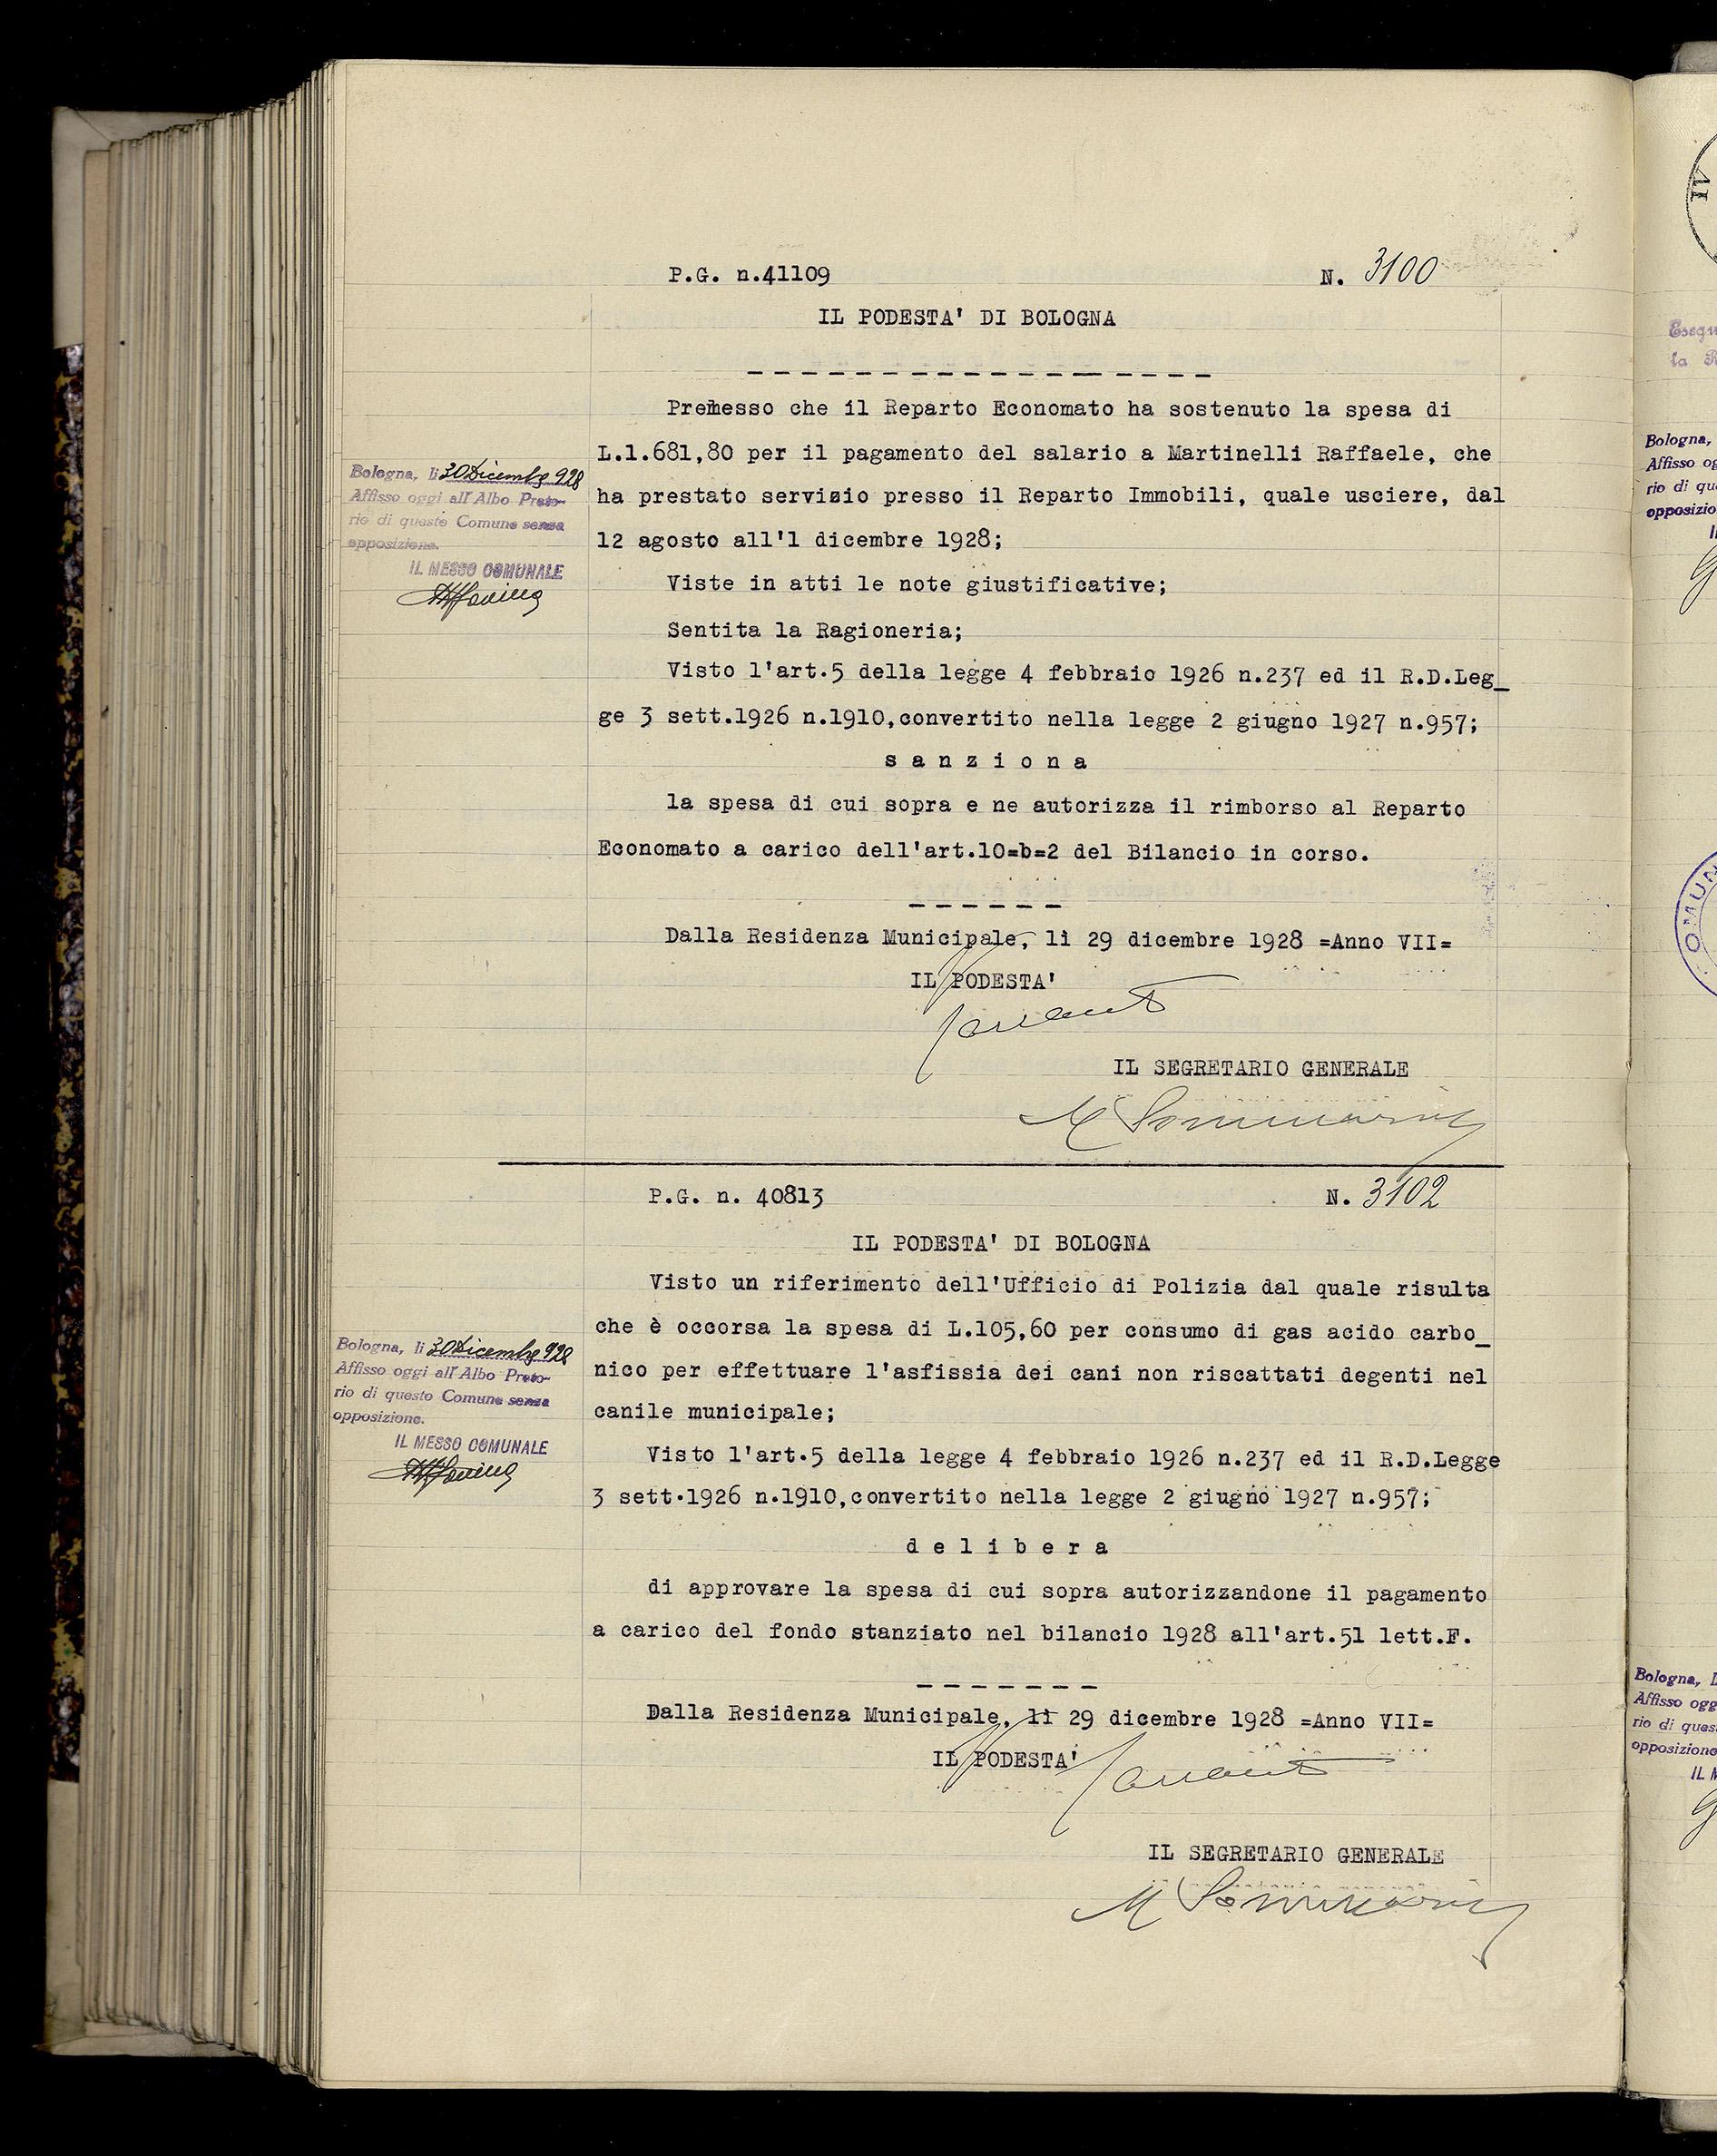 P.G. n.41109 N. 3100
IL PODESTA' DI BOLOGNA
Premesso che il Reparto Economato ha sostenuto la spesa di
L.1.681,80 per il pagamento del salario a Martinelli Raffaele, che
ha prestato servizio presso il Reparto Immobili, quale usciere, dal
12 agosto all'1 dicembre 1928;
Viste in atti le note giustificative;
Sentita la Ragioneria;
Visto l'art.5 della legge 4 febbraio 1926 n.237 ed il R.D.Leg_
ge 3 sett.1926 n.1910,convertito nella legge 2 giugno 1927 n.957;
s a n z i o n a
la spesa di cui sopra e ne autorizza il rimborso al Reparto
Economato a carico dell'art.10=b=2 del Bilancio in corso.
Dalla Residenza Municipale, li 29 dicembre 1928 =Anno VII=
IL PODESTA'
IL SEGRETARIO GENERALE
Bologna, li 30 Dicembre 928
Affisso oggi all'Albo Preto-
rio di questo Comune senza
opposizione.
IL MESSO COMUNALE
P.G. n. 40813 N. 3102
IL PODESTA' DI BOLOGNA
Visto un riferimento dell'Ufficio di Polizia dal quale risulta
che è occorsa la spesa di L.105,60 per consumo di gas acido carbo_
nico per effettuare l'asfissia dei cani non riscattati degenti nel
canile municipale;
Visto l'art.5 della legge 4 febbraio 1926 n.237 ed il R.D.Legge
3 sett.1926 n.1910,convertito nella legge 2 giugno 1927 n.957;
d e l i b e r a
di approvare la spesa di cui sopra autorizzandone il pagamento
a carico del fondo stanziato nel bilancio 1928 all'art.51 lett.F.
Dalla Residenza Municipale, li 29 dicembre 1928 =Anno VII=
IL PODESTA'
IL SEGRETARIO GENERALE
Bologna, li 30 Dicembre 928
Affisso oggi all'Albo Preto-
rio di questo Comune senza
opposizione.
IL MESSO COMUNALE
Bologna,
Affisso og
rio di qu
opposizio
Bologna,
Affisso ogg
rio di ques
opposizione
IL M